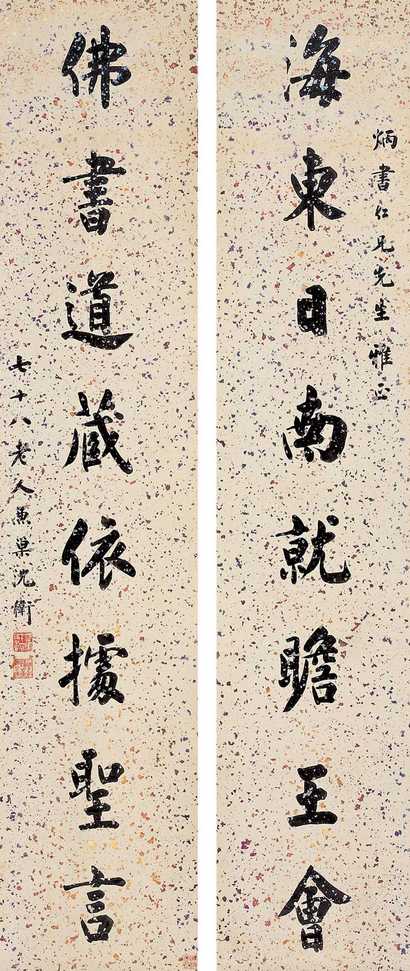 炳書仁兄先生雅正
海東日南就瞻王會
佛書道藏依據聖言
七十八老人兼巢沈衛